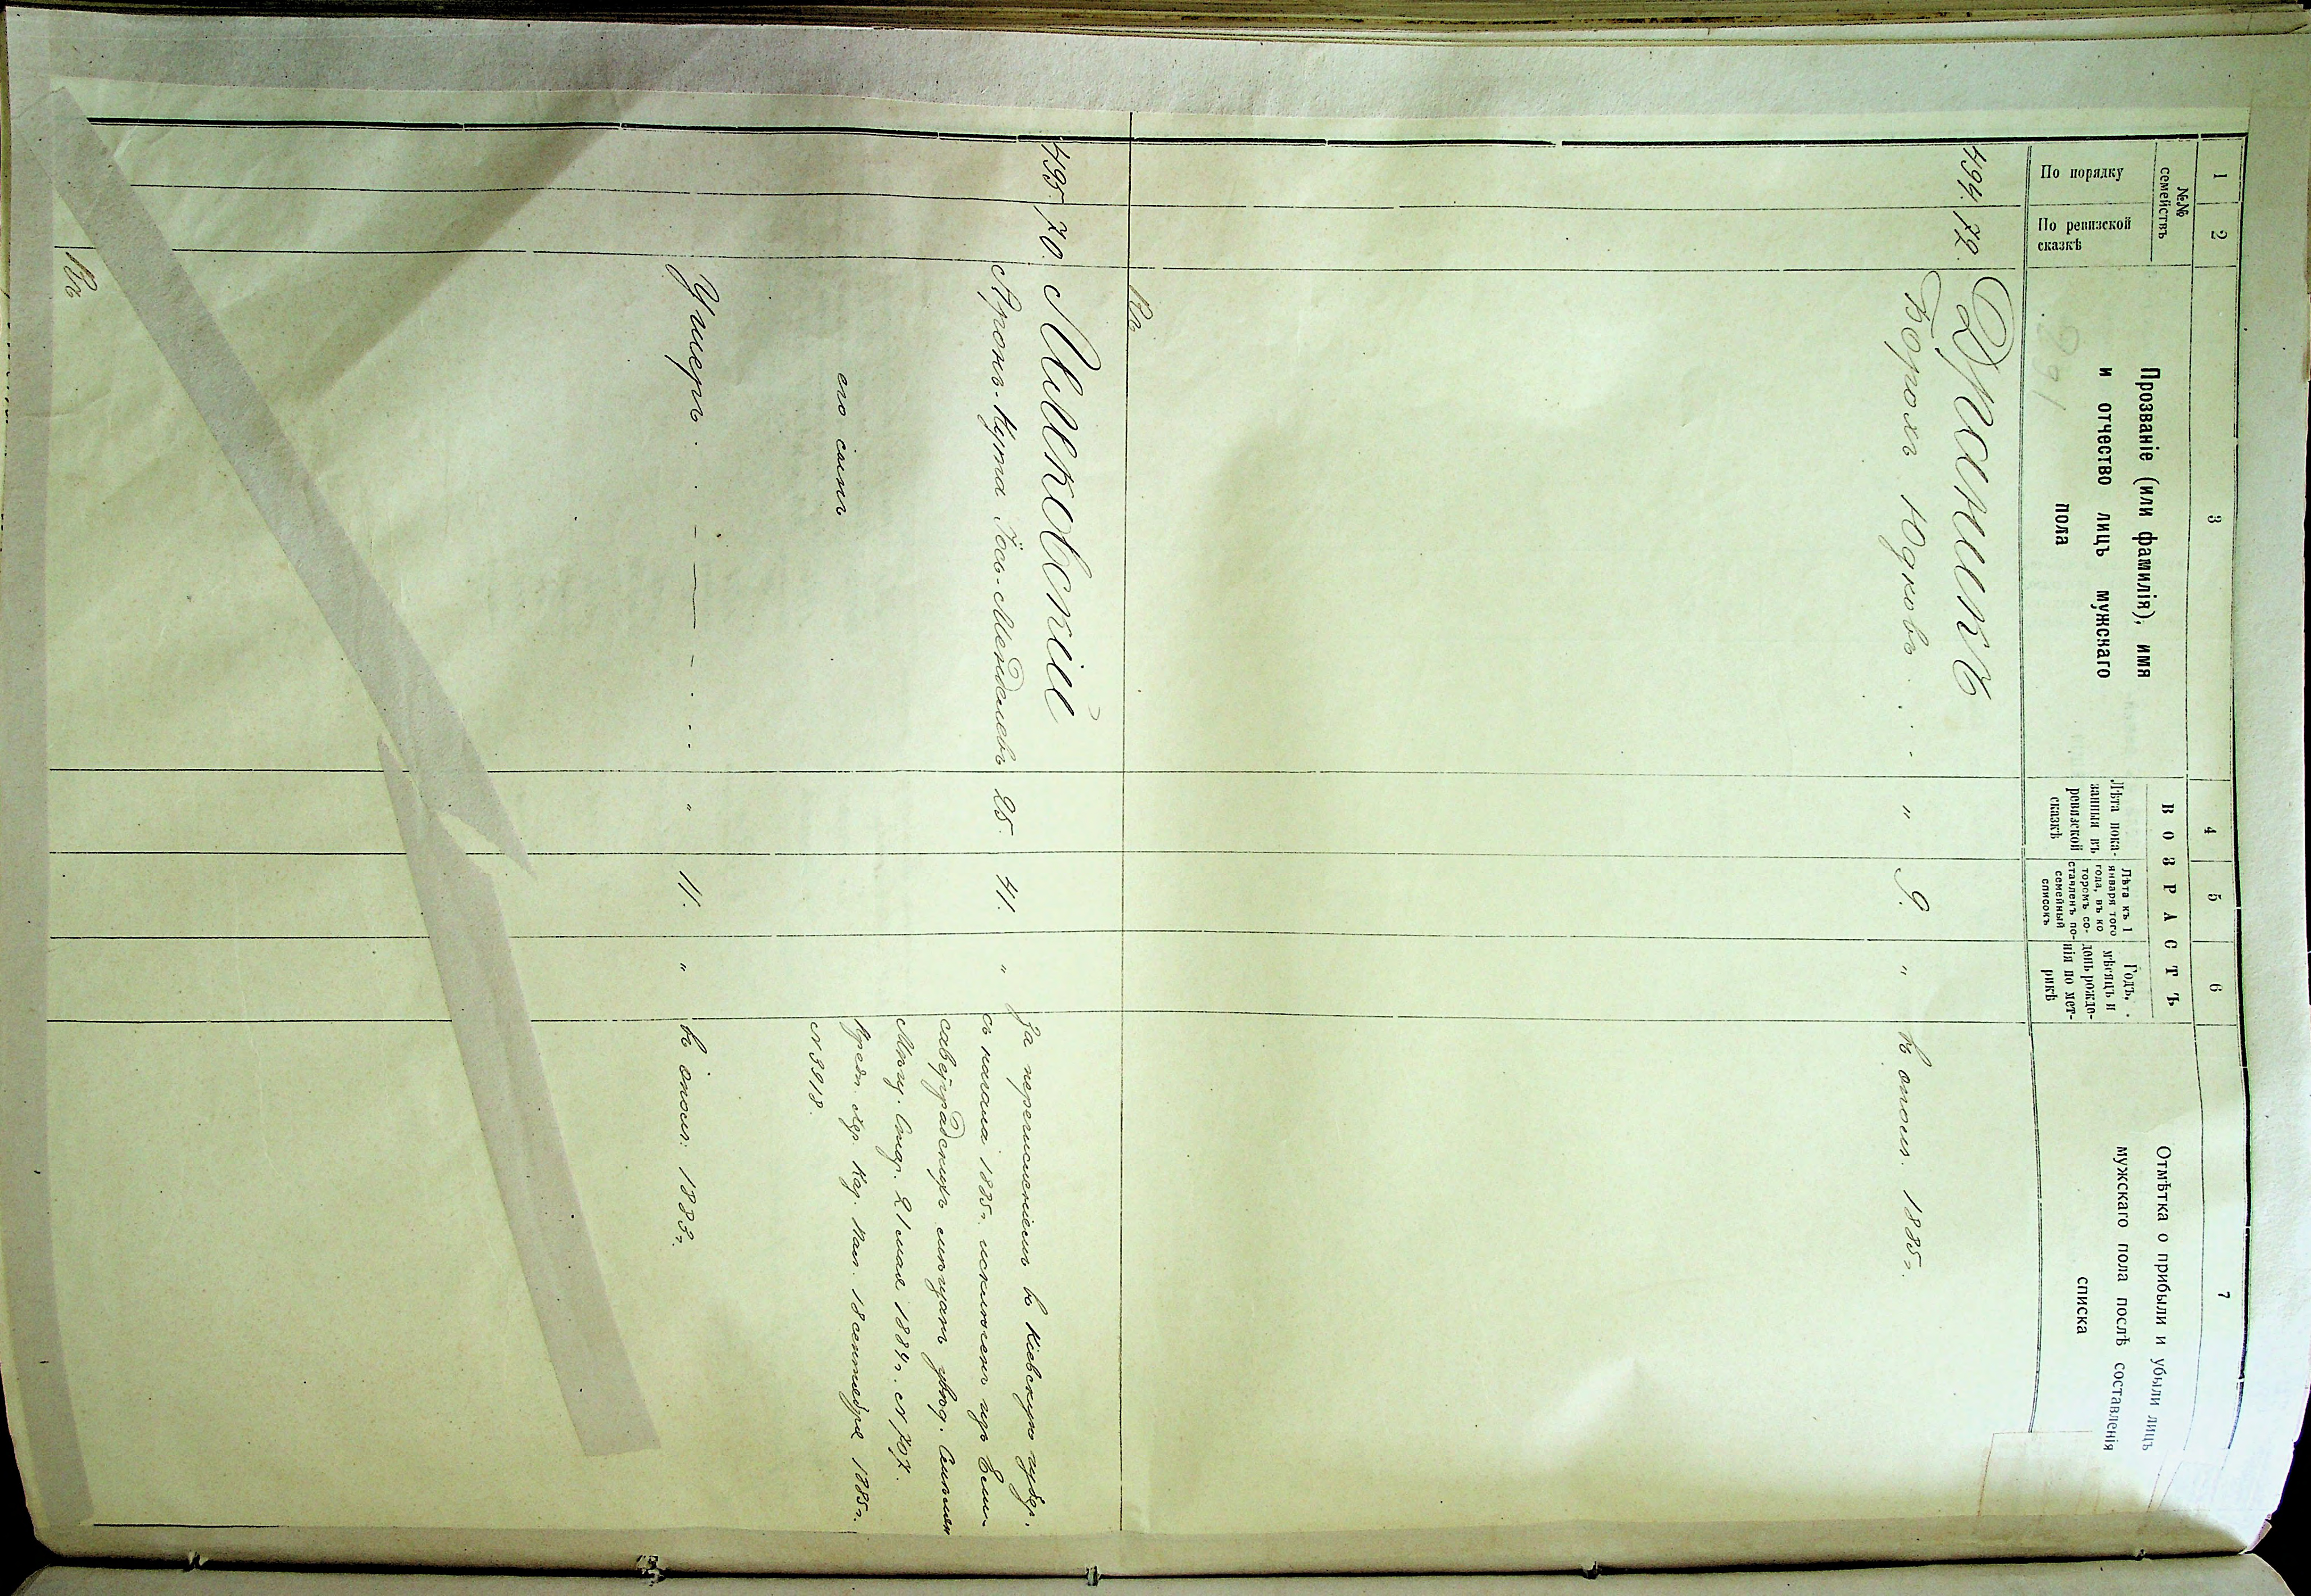 1
2
3
4
5
6
7
№№ семействъ
По порядку
По ревизской
сказкѣ
Прозваніе (или фамилія), имя
и отчество лицъ мужскаго
пола
ВОЗРАСТЪ
Лѣта пока-
занныя въ
ревизской
сказкѣ
Лѣта къ 1
января того
года, въ ко
торомъ со-
ставленъ по-
семейный
списокъ
Годъ,
мѣсяцъ и
день рожде-
нія по мет-
рикѣ
Отмѣтка о прибыли и убыли лицъ
мужскаго пола послѣ составленія
списка
494. 72. Драникъ
Борохъ Юдковъ . . . " 9. " въ опол. 1885 г.
495. 70. Милковскій
Аронъ-Купа Іось-Менделевъ 25. 41. "
За перечисленіемъ въ Кіевскую губер.
съ начала 1885 г. исключенъ изъ Ели-
саветградскихъ мѣщанъ
Мѣщ. 21 мая 1884 г. № 707.
Каз. Пал. 18 сентября 1885 г.
№ 3918.
его сынъ
Ушеръ . . " 11. " въ опол: 1883 г.